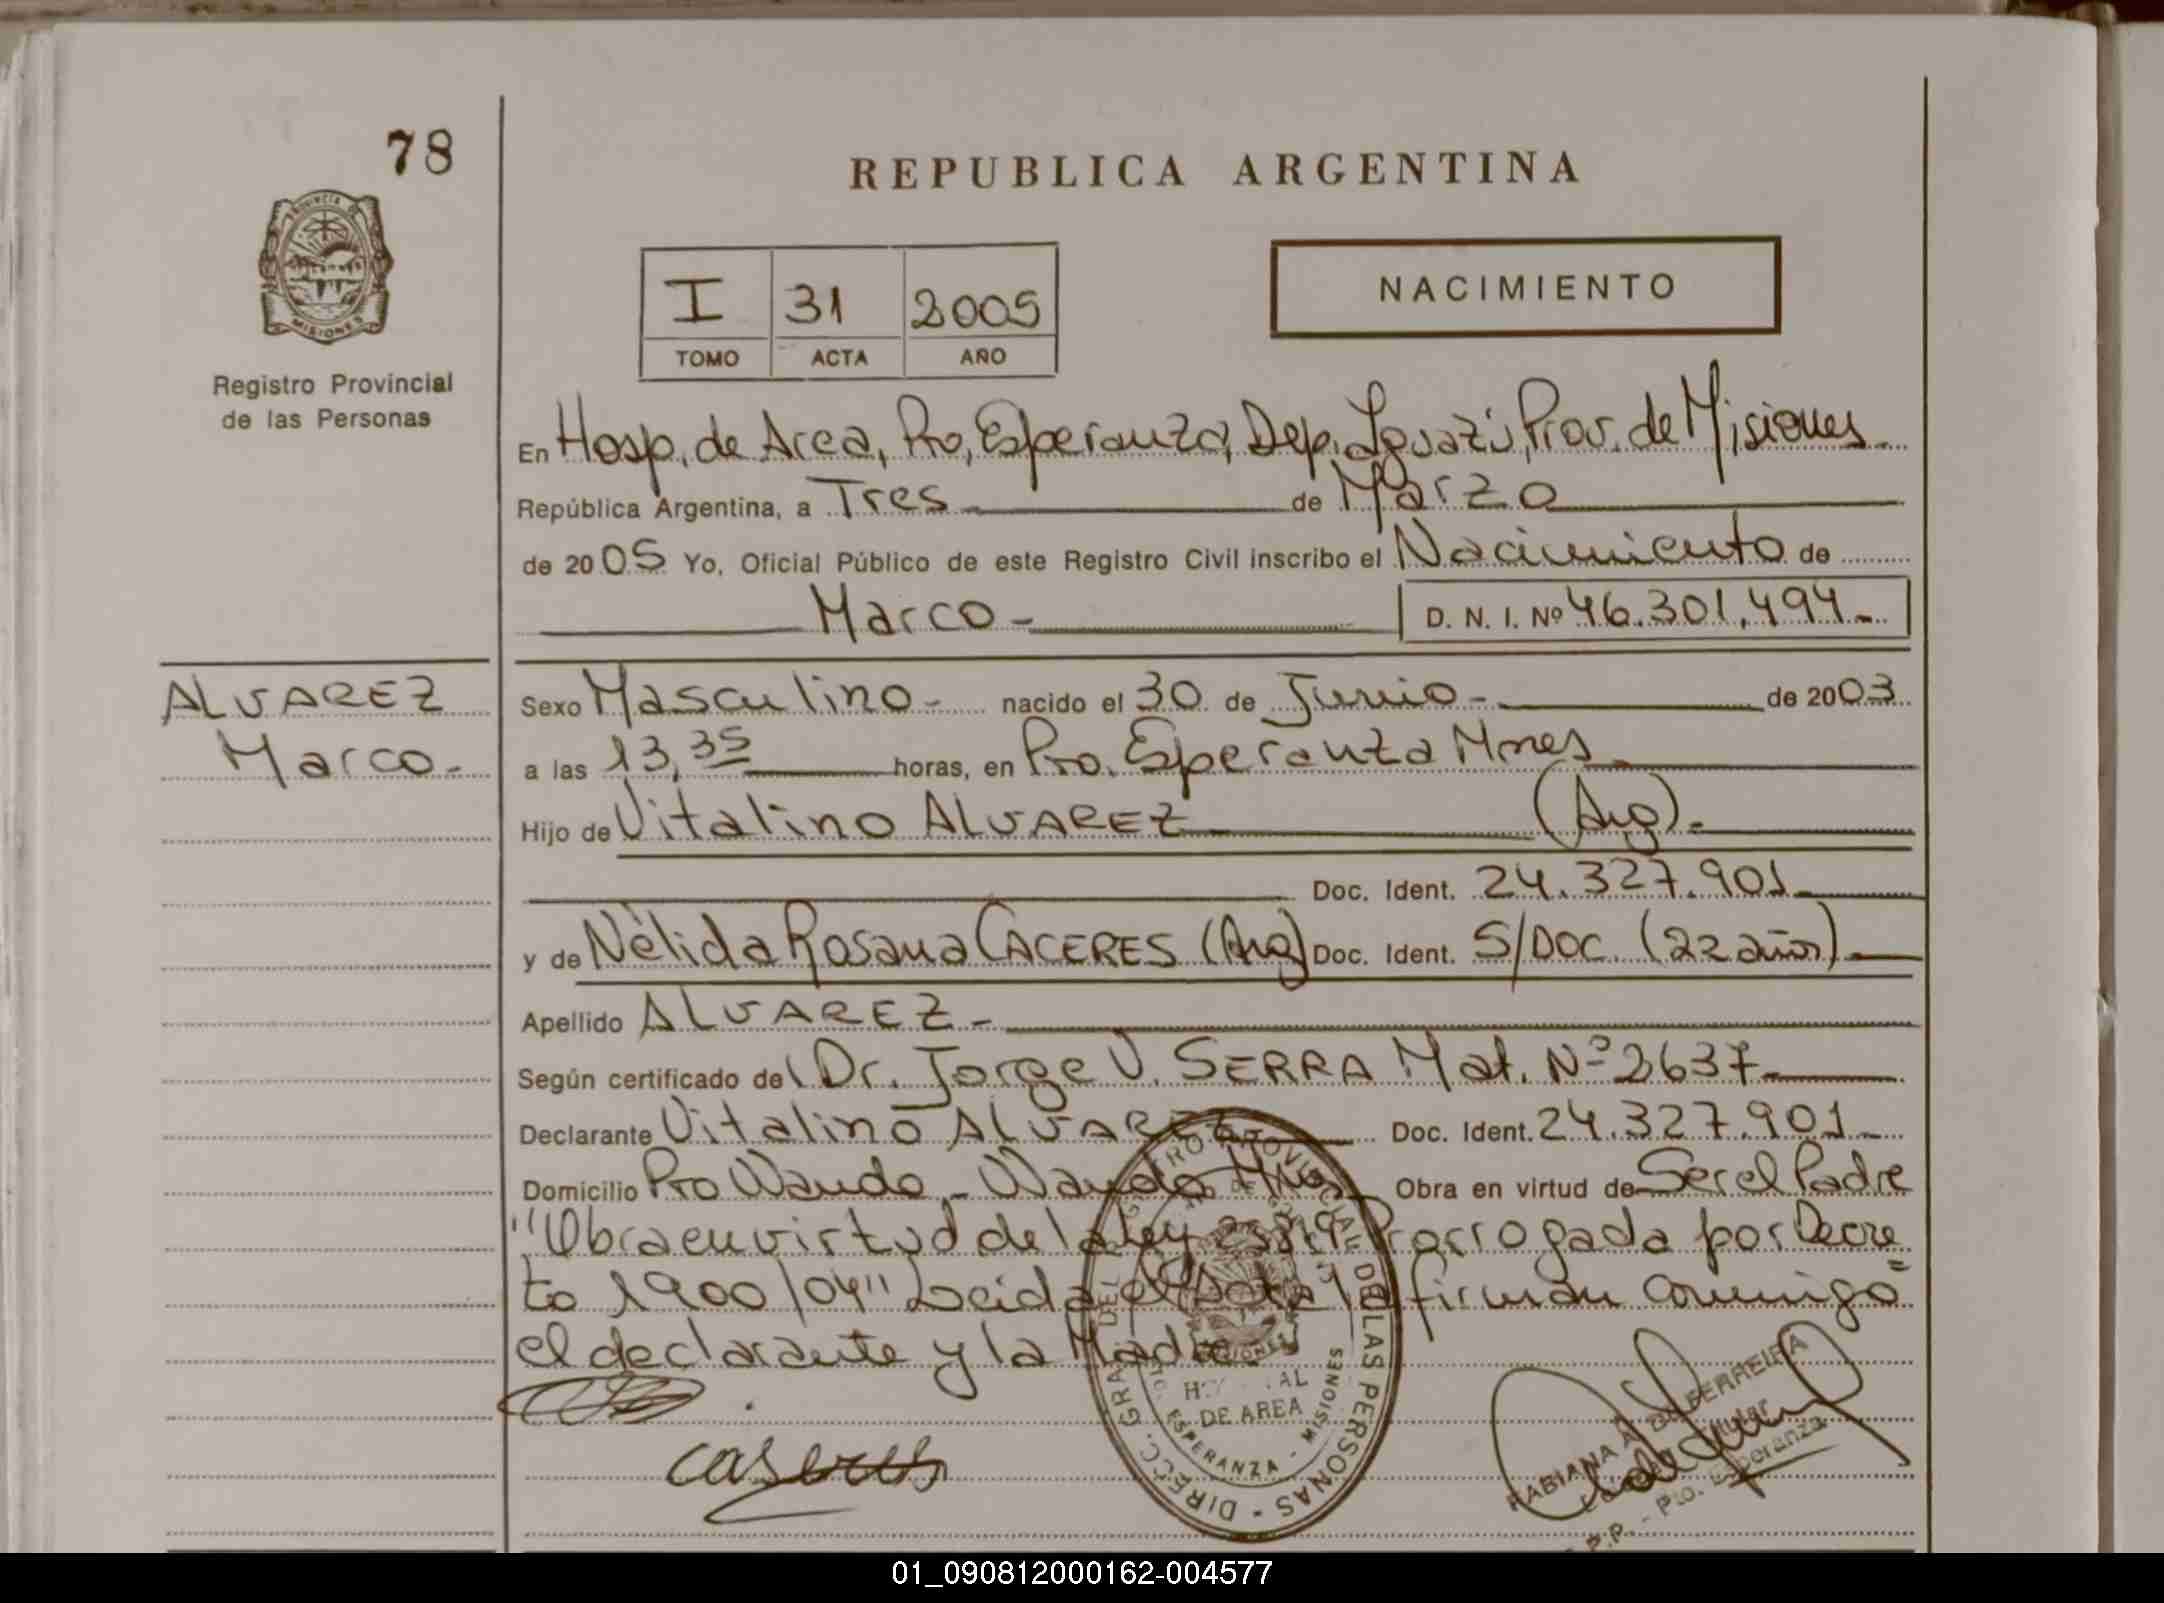 78
REPUBLICA ARGENTINA
PROVINCIA DE
MISIONES
I 31 2005
TOMO ACTA AÑO
NACIMIENTO
Registro Provincial
de las Personas
En Hosp. de Area, Pto, Esperanza, Dep. Iguazú, Prov. de Misiones
República Argentina, a Tres de Marzo
de 2005 Yo, Oficial Público de este Registro Civil inscribo el Nacimiento de
Marco- D. N. I. Nº 46.301.494-
ALVAREZ
Marco-
Sexo Masculino- nacido el 30 de Junio- de 2003
a las 13,35 horas, en Pto. Esperanza Mnes
Hijo de Vitalino ALVAREZ (Arg)-
Doc. Ident. 24.327.901-
y de Nélida Rosana CACERES (Arg) Doc. Ident. S/DOC. (22 años)-
Apellido ALVAREZ-
Según certificado del Dr. Jorge V. SERRA Mat. Nº 2637-
Declarante Vitalino ALVAREZ Doc. Ident. 24.327.901-
Domicilio Pto Wanda - Wanda Mnes Obra en virtud de Ser el Padre
"Obra en virtud de la ley Prorrogada por Decre=
to 1900/04" Leida el Acta la firman conmigo
el declarante y la Madre.
caseres
DIRECC. GRAL. DEL REGISTRO PROVINCIAL DE LAS PERSONAS
MISIONES
DE AREA
ESPERANZA - MISIONES
FABIANA A. FERREIRA
Titular
Pto. Esperanza
01_090812000162-004577